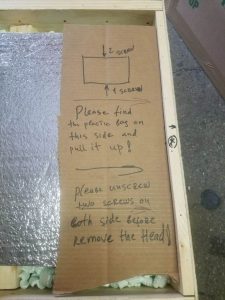 ↓ 2 SCREW
↑ 1 SCREW
Please find
the plastic bag on
this side and
pull it up!
please unscrew
two screws on
Both side before
remove the Head!